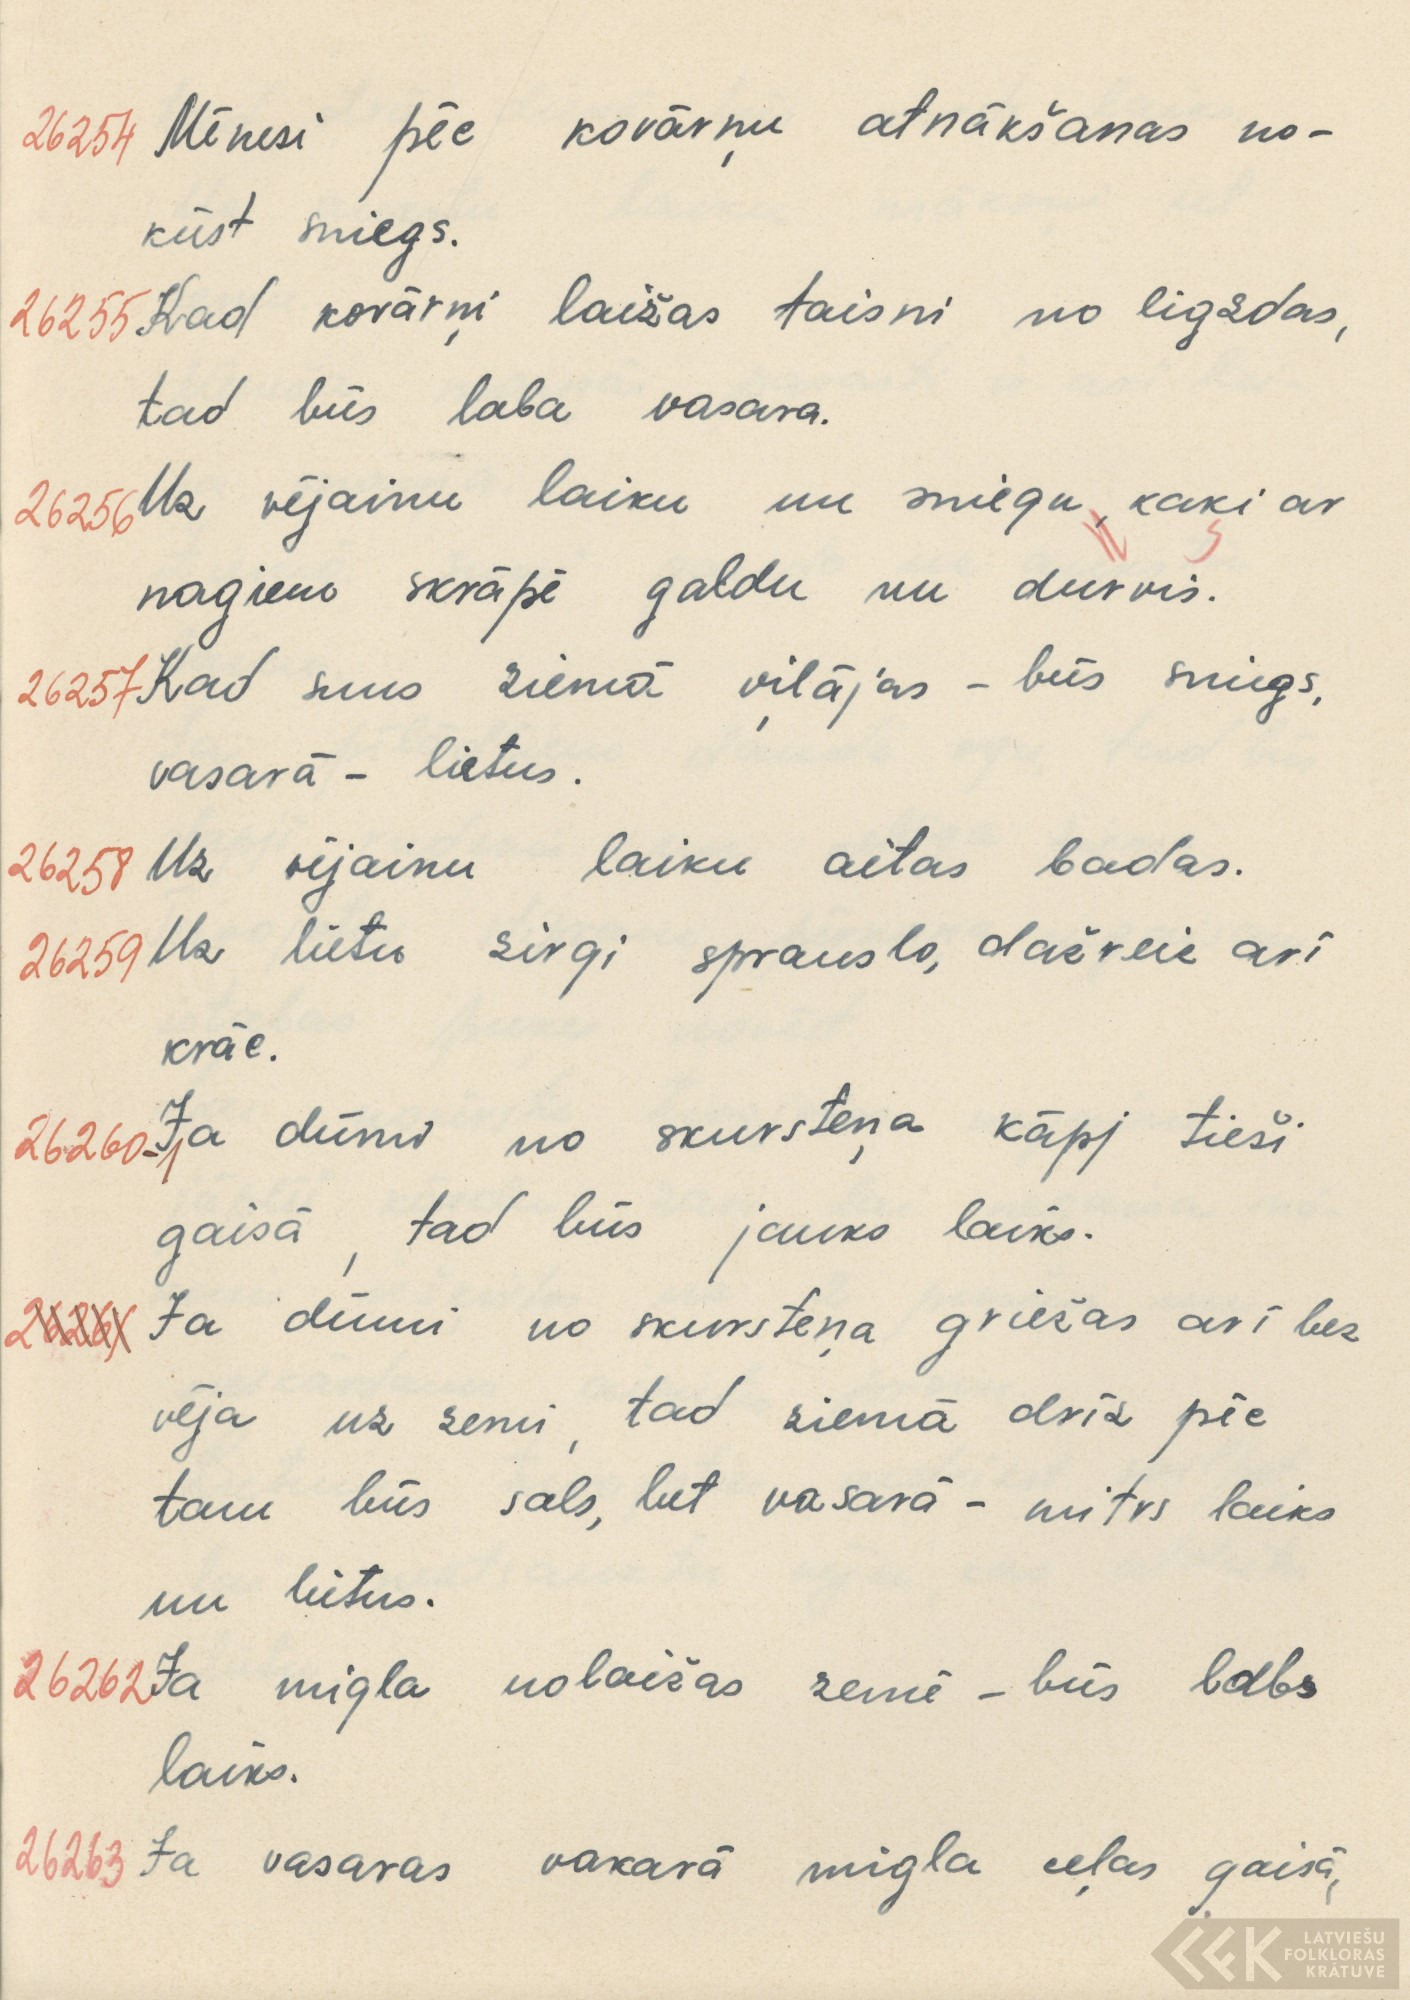 26254 Mēnesi pēc kovārņu atnākšanas no-
kūst sniegs.
26255 Kad kovārņi laižas taisni no ligzdas,
tad būs laba vasara.
26256 Uz vējainu laiku un sniegu, kaķi ar
nagiem skrāpē galdu un durvis.
26257 Kad suns ziemā viļājas - būs sniegs,
vasarā - lietus.
26258 Uz vējainu laiku aitas badas.
26259 Uz lietu zirgi sprauslo, dažreiz arī
krāc.
26260 Ja dūmi no skursteņa kāpj tieši
gaisā, tad būs jauks laiks.
26261 Ja dūmi no skursteņa griežas arī bez
vēja uz zemi, tad ziemā drīz pēc
tam būs sals, bet vasarā - mitrs laiks
un lietus.
26262 Ja migla nolaižas zemē - būs labs
laiks.
26263 Ja vasaras vakarā migla ceļas gaisā,
LATVIEŠU
FOLKLORAS
KRĀTUVE